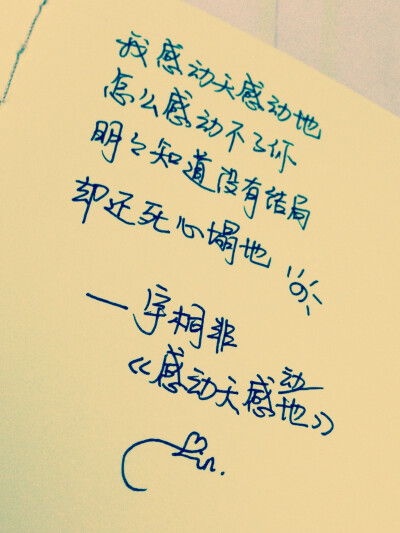 我感动天感动地
怎么感动不了你
明々知道没有结局
却还死心塌地
—宇桐非
《感动天感动地》
Lin.